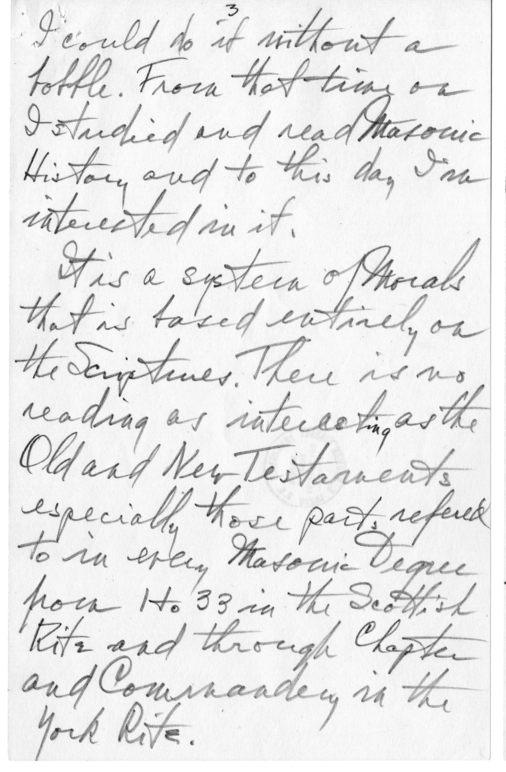 3
I could do it without a
bobble. From that time on
I studied and read Masonic
History and to this day I'm
interested in it.
It is a system of Morals
that is based entirely on
the Scriptures. There is no
reading as interesting as the
Old and New Testaments
especially those parts refered
to in every Masonic Degree
from 1 to 33 in the Scottish
Rite and through Chapter
and Commandery in the
York Rite.